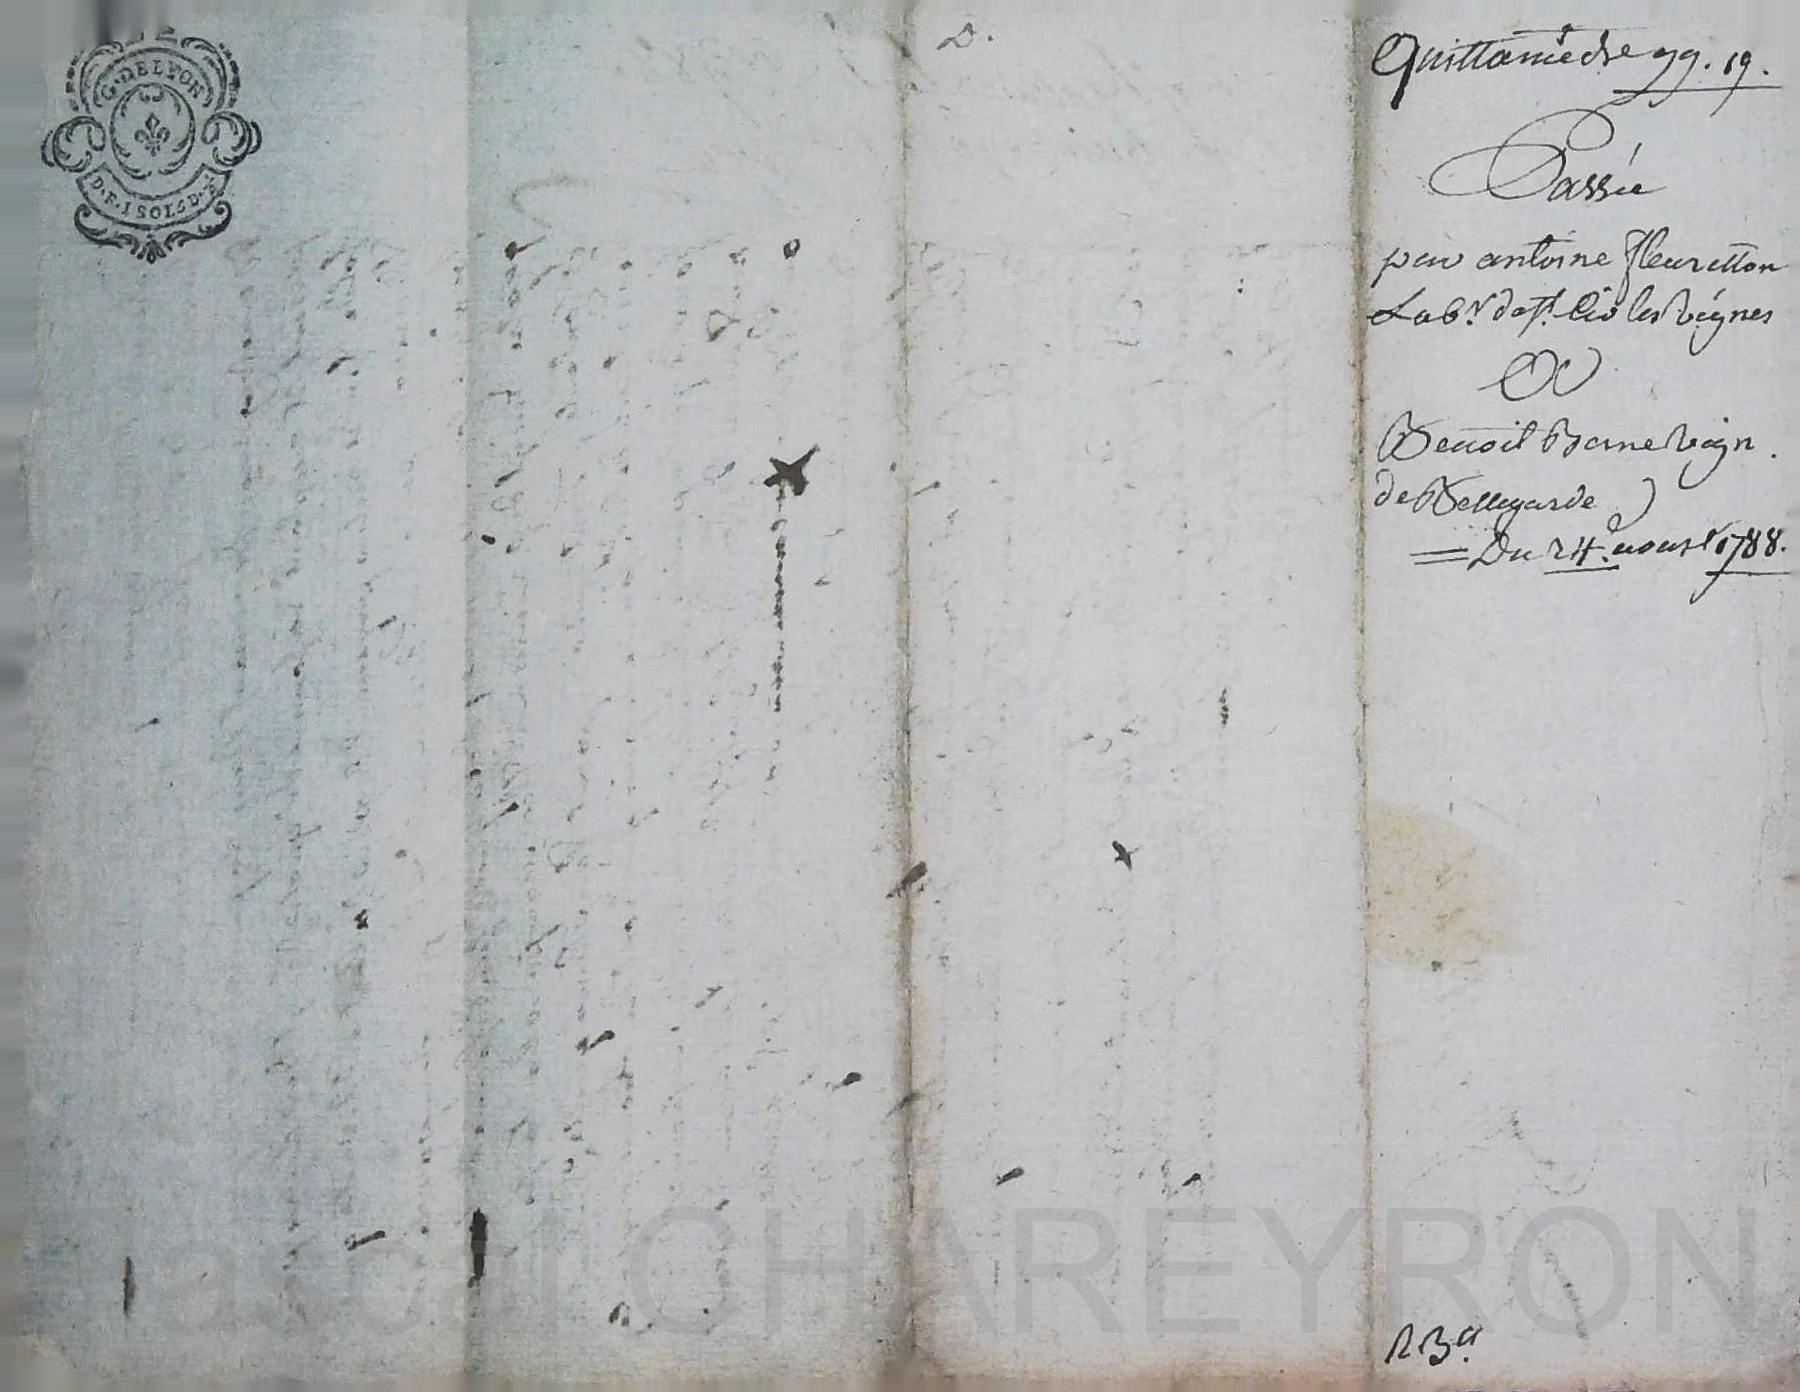 G. DE LYON
D. F. 1 SOL 6 D.
D.
Quittance de 99. 19.
Passée
par antoine fleuretton
Lab.r de st. Cir les vignes
A
Benoit Berne vign.
de Bellegarde
= Du 24. aoust 1788.
Pascal CHAREYRON